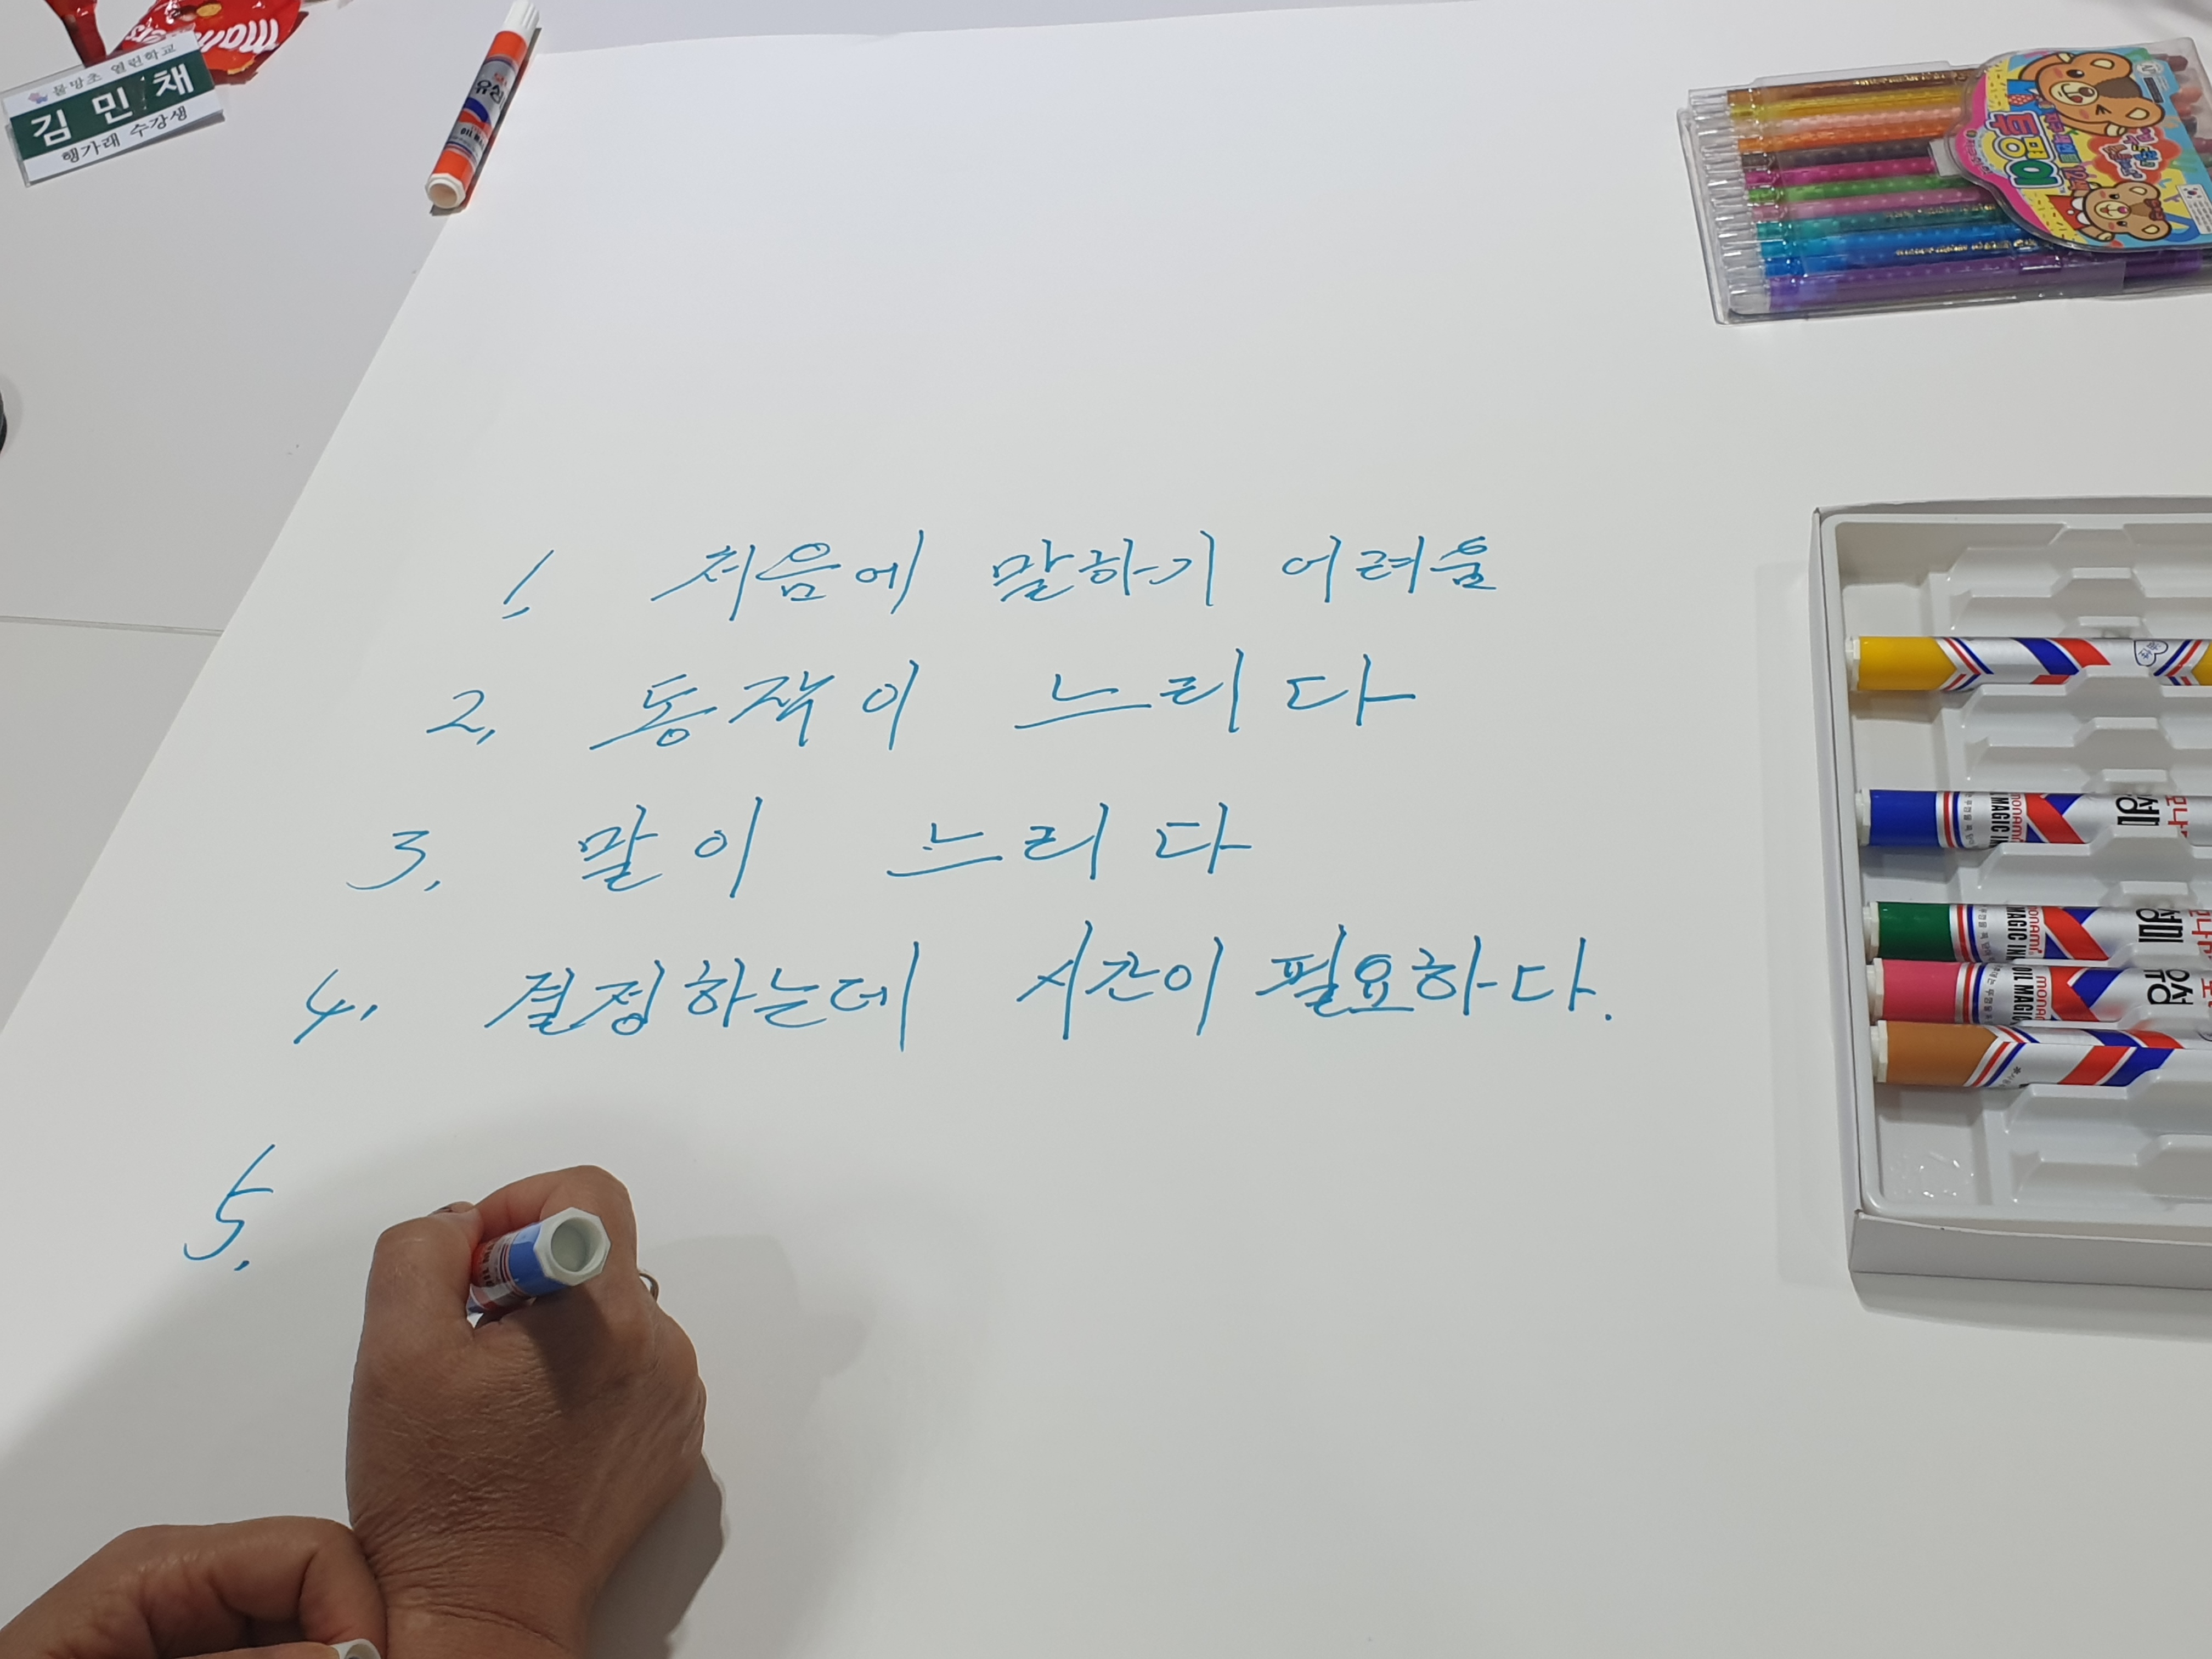 물망초 열린학교
김민채
행가래 수강생
유성
1. 처음에 말하기 어려움
2. 동작이 느리다
3. 말이 느리다
4. 결정하는데 시간이 필요하다.
5.
monami
MAGIC IN
monami
MAGIC IN
OIL MAGIC
유성